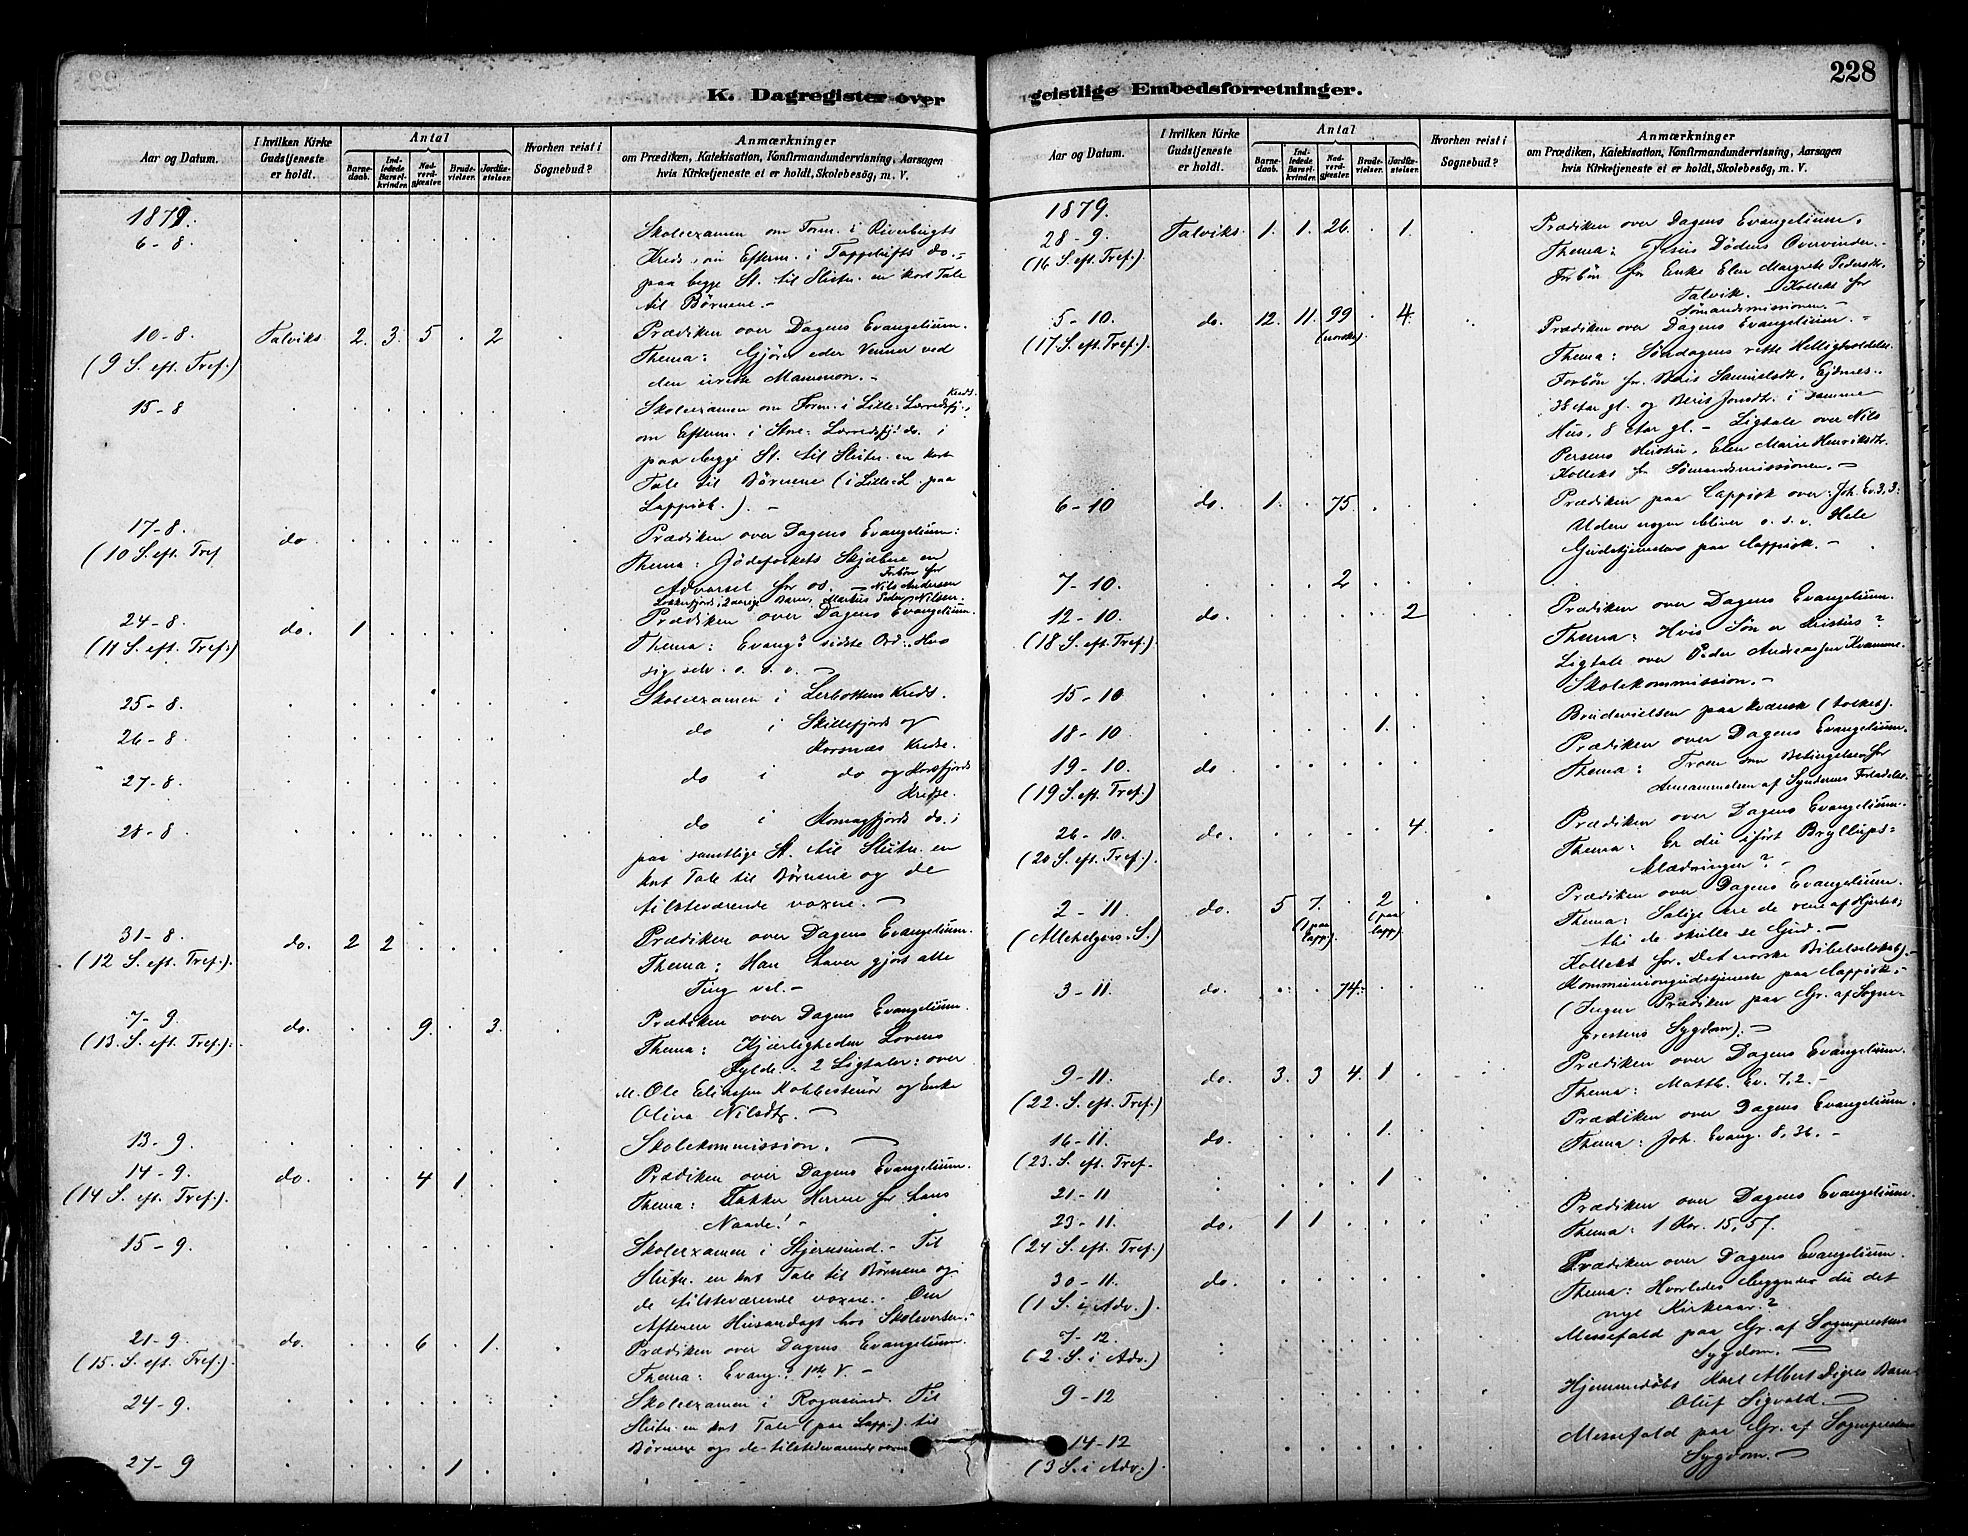 K. Dagregister over geistlige Embedsforretninger.
228
Aar og Datum.
I hvilken Kirke Gudstjeneste er holdt.
Antal
Barnedaab.
Indledede Barselkvinder.
Nadverdgjester.
Brudevielser.
Jordfæstelser.
Hvorhen reist i Sognebud?
Anmærkninger
om Prædiken, Katekisation, Konfirmandundervisning, Aarsagen
hvis Kirketjeneste ei er holdt, Skolebesøg, m. V.
1879.
6-8 Skoleexamen om Form. i
Kreds, om Efterm. i do.
paa begge St. til Slutn. en kort Tale
til Børnene.-
10-8 Talviks 2. 3. 5 2 Prædiken over Dagens Evangelium.
(9 S. eft. Tref.) Thema: Gjører eder Venner ved
den urette Mammon.-
15-8 Skoleexamen om Form. i Lille-Lerredsfj. Kreds,
om Efterm. i Store-Lerredsfj. do. i
paa begge St. til Slutn. en kort
Tale til Børnene (i Lille-L. paa
Lappisk.).-
17-8. do Prædiken over Dagens Evangelium:
(10 S. eft. Tref Thema: Jødefolkets Skjæbne en
Advarsel for os.- Forbøn for Nils Andersen
24-8. do. 1 Prædiken over Dagens Evangelium.
(11 S. eft. Tref.) Thema: Evang. sidste Ord: Hvo
sig selv o. s. v.-
25-8 Skoleexamen i Lerbottens Kreds.
26-8 do i Skillefjords og
Korsnæs Kredse.
27-8 do i do og Korsfjords
Kredse.
28-8 do i Komagfjords do. i
paa samtlige St. til Slutn. en
kort Tale til Børnene og de
tilstedværende voxne.-
31-8 do. 2 2 Prædiken over Dagens Evangelium.
(12 S. eft. Tref.). Thema: Han haver gjort alle
Ting vel.-
7-9. do. 9. 3. Prædiken over Dagens Evangelium.
(13. S. eft. Tref.). Thema: Kjærligheden Lovens
Fylde. - 2 Ligtaler: over
M. Ole og Enke
Olina Nilsdtr.-
13-9 Skolekommission.-
14-9. do. 4 1 Prædiken over Dagens Evangelium.
(14 S. eft. Tref.). Thema: Takker Herren for hans
Naade!-
15-9. Skoleexamen i Stjernsund.- Til
Slutn. en kort Tale til Børnene og
de tilstedværende voxne.- Om
Aftenen Husandagt hos
21-9 do. 6 1. Prædiken over Dagens Evangelium.
(15. S. eft. Tref.). Thema: Evang. 1ste V.-
24-9. Skoleexamen i Rognsund. Til
Slutn. en kort Tale (paa Lapp.) til
Børnene og de tilstedværende voxne
27-9 1
Aar og Datum.
I hvilken Kirke Gudstjeneste er holdt.
Antal
Barnedaab.
Indledede Barselkvinder.
Nadverdgjester.
Brudevielser.
Jordfæstelser.
Hvorhen reist i Sognebud?
Anmærkninger
om Prædiken, Katekisation, Konfirmandundervisning, Aarsagen
hvis Kirketjeneste ei er holdt, Skolebesøg, m. V.
1879.
28-9. Talviks. 1. 1. 26. 1. Prædiken over Dagens Evangelium.
(16 S. eft. Tref.) Thema: Jesus Dødens Overvinder.-
Forbøn for Enke Elen Margrete Pedersdtr.
Talvik. Kollekt for
Sømandsmissionen.-
5-10. do. 12. 11. 99 (norske) 4. Prædiken over Dagens Evangelium.-
(17. S. eft. Tref.). Thema: Søndagens rette Helligholdelse
Forbøn for Samuelsdtr.
38 Aar gl. og Jonsdtr. i samme
Hus, 8 Aar gl.- Ligtale over Nils
Persens Hustru, Elen Marie Henriksdtr.
Kollekt for Sømandsmissionen.-
6-10 do. 1. 75 Prædiken paa Lappisk over: Joh. Ev. 3, 3:
Uden nogen bliver o. s. v. Hele
Gudstjenesten paa Lappisk.-
7-10. 2
12-10. do. 2 Prædiken over Dagens Evangelium.
(18 S. eft. Tref.) Thema: Hvis Søn er Kristus?
Ligtale over Peder Andreassen
15-10 Skolekommission.-
18-10. 1. Brudevielsen paa kvænsk (tolket).
19-10. do Prædiken over Dagens Evangelium.
(19 S. eft. Tref.) Thema: Troen som Betingelsen for
Annammelsen af Syndernes Forladelse.
26-10. do. 4. Prædiken over Dagens Evangelium.
(20 S. eft. Tref.). Thema: Er du iført Bryllups-
klædningen?-
2-11. do. 5 7. (1 paa Lapp.) 2 (1 paa Lapp.) Prædiken over Dagens Evangelium.
(Allehelgens-S.) Thema: Salige ere de rene af Hjertet,
thi de skulle se Gud.-
Kollekt for Det norske Bibelselskab.-
3-11. do. 74. Kommuniongudstjeneste paa Lappisk.-
(Ingen Prædiken paa Gr. af Sogne-
prestens Sygdom).-
9-11. do. 3. 3 4. 1 Prædiken over Dagens Evangelium.
(22. S. eft. Tref.) Thema: Matth. Ev. 7, 2.-
16-11. do. 1. Prædiken over Dagens Evangelium.
(23. S. eft. Tref. Thema: Joh. Evang. 8, 36.-
21-11 1
23-11. do. 1 1 Prædiken over Dagens Evangelium.
(24 S. eft. Tref.) Thema: 1 Kor. 15, 57.
30-11. do. Prædiken over Dagens Evangelium.
(1 S. i Adv.). Thema: Hvorledes begynder du det
nye Kirkeaar?
7-12. Messefald paa Gr. af Sogneprestens
(2. S. i Adv.) Sygdom.-
9-12 Hjemmedøbt Karl Albert Barn
Oluf Sigvald.-
14-12 Messefald paa Gr. af Sogneprestens
(3 S. i Adv.). Sygdom.-